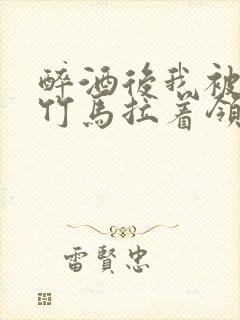 醉酒後我被
竹馬拉着領
雷賢忠